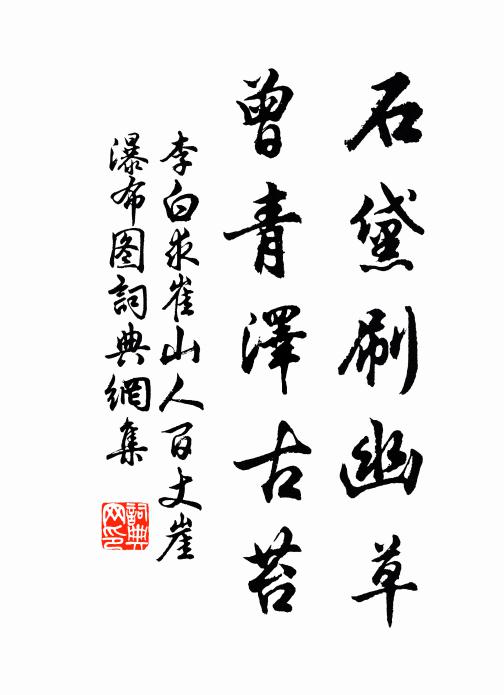 石黛刷幽草
曾青澤古苔
李白求崔山人百丈崖
瀑布图詞典網集
詞典网印